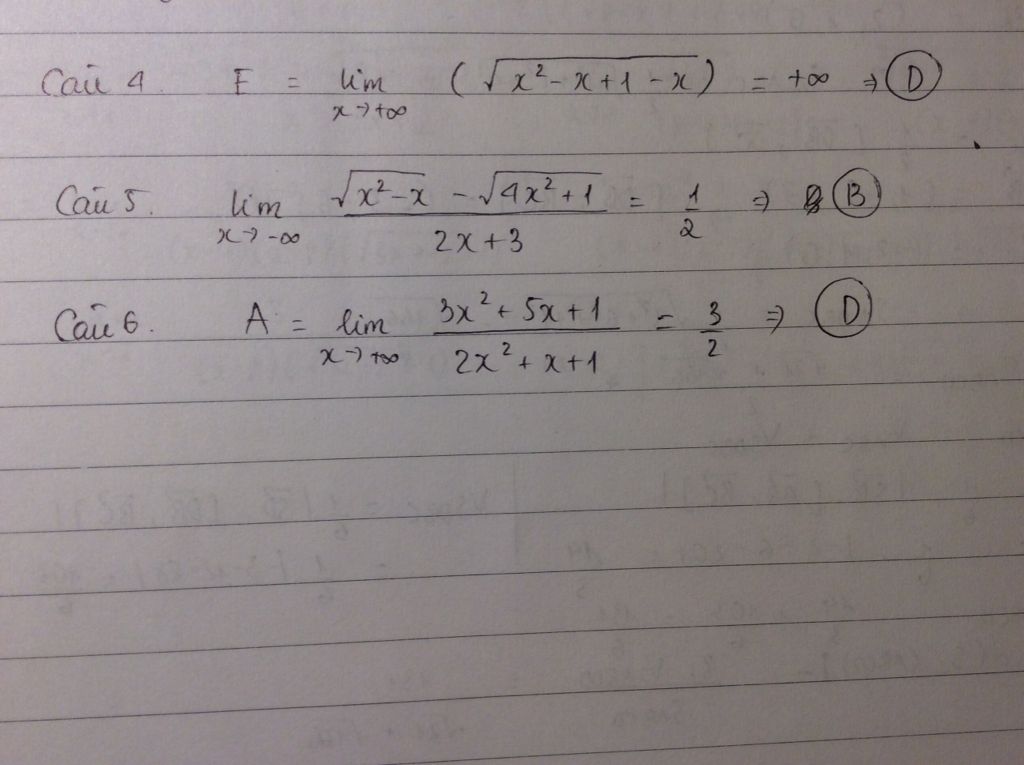 Câu 4. E = lim x→+∞ (√(x² - x + 1 - x)) = +∞ ⇒ D
Câu 5. lim x→-∞ (√(x² - x) - √(4x² + 1)) / (2x + 3) = 1/2 ⇒ B
Câu 6. A = lim x→+∞ (3x² + 5x + 1) / (2x² + x + 1) = 3/2 ⇒ D